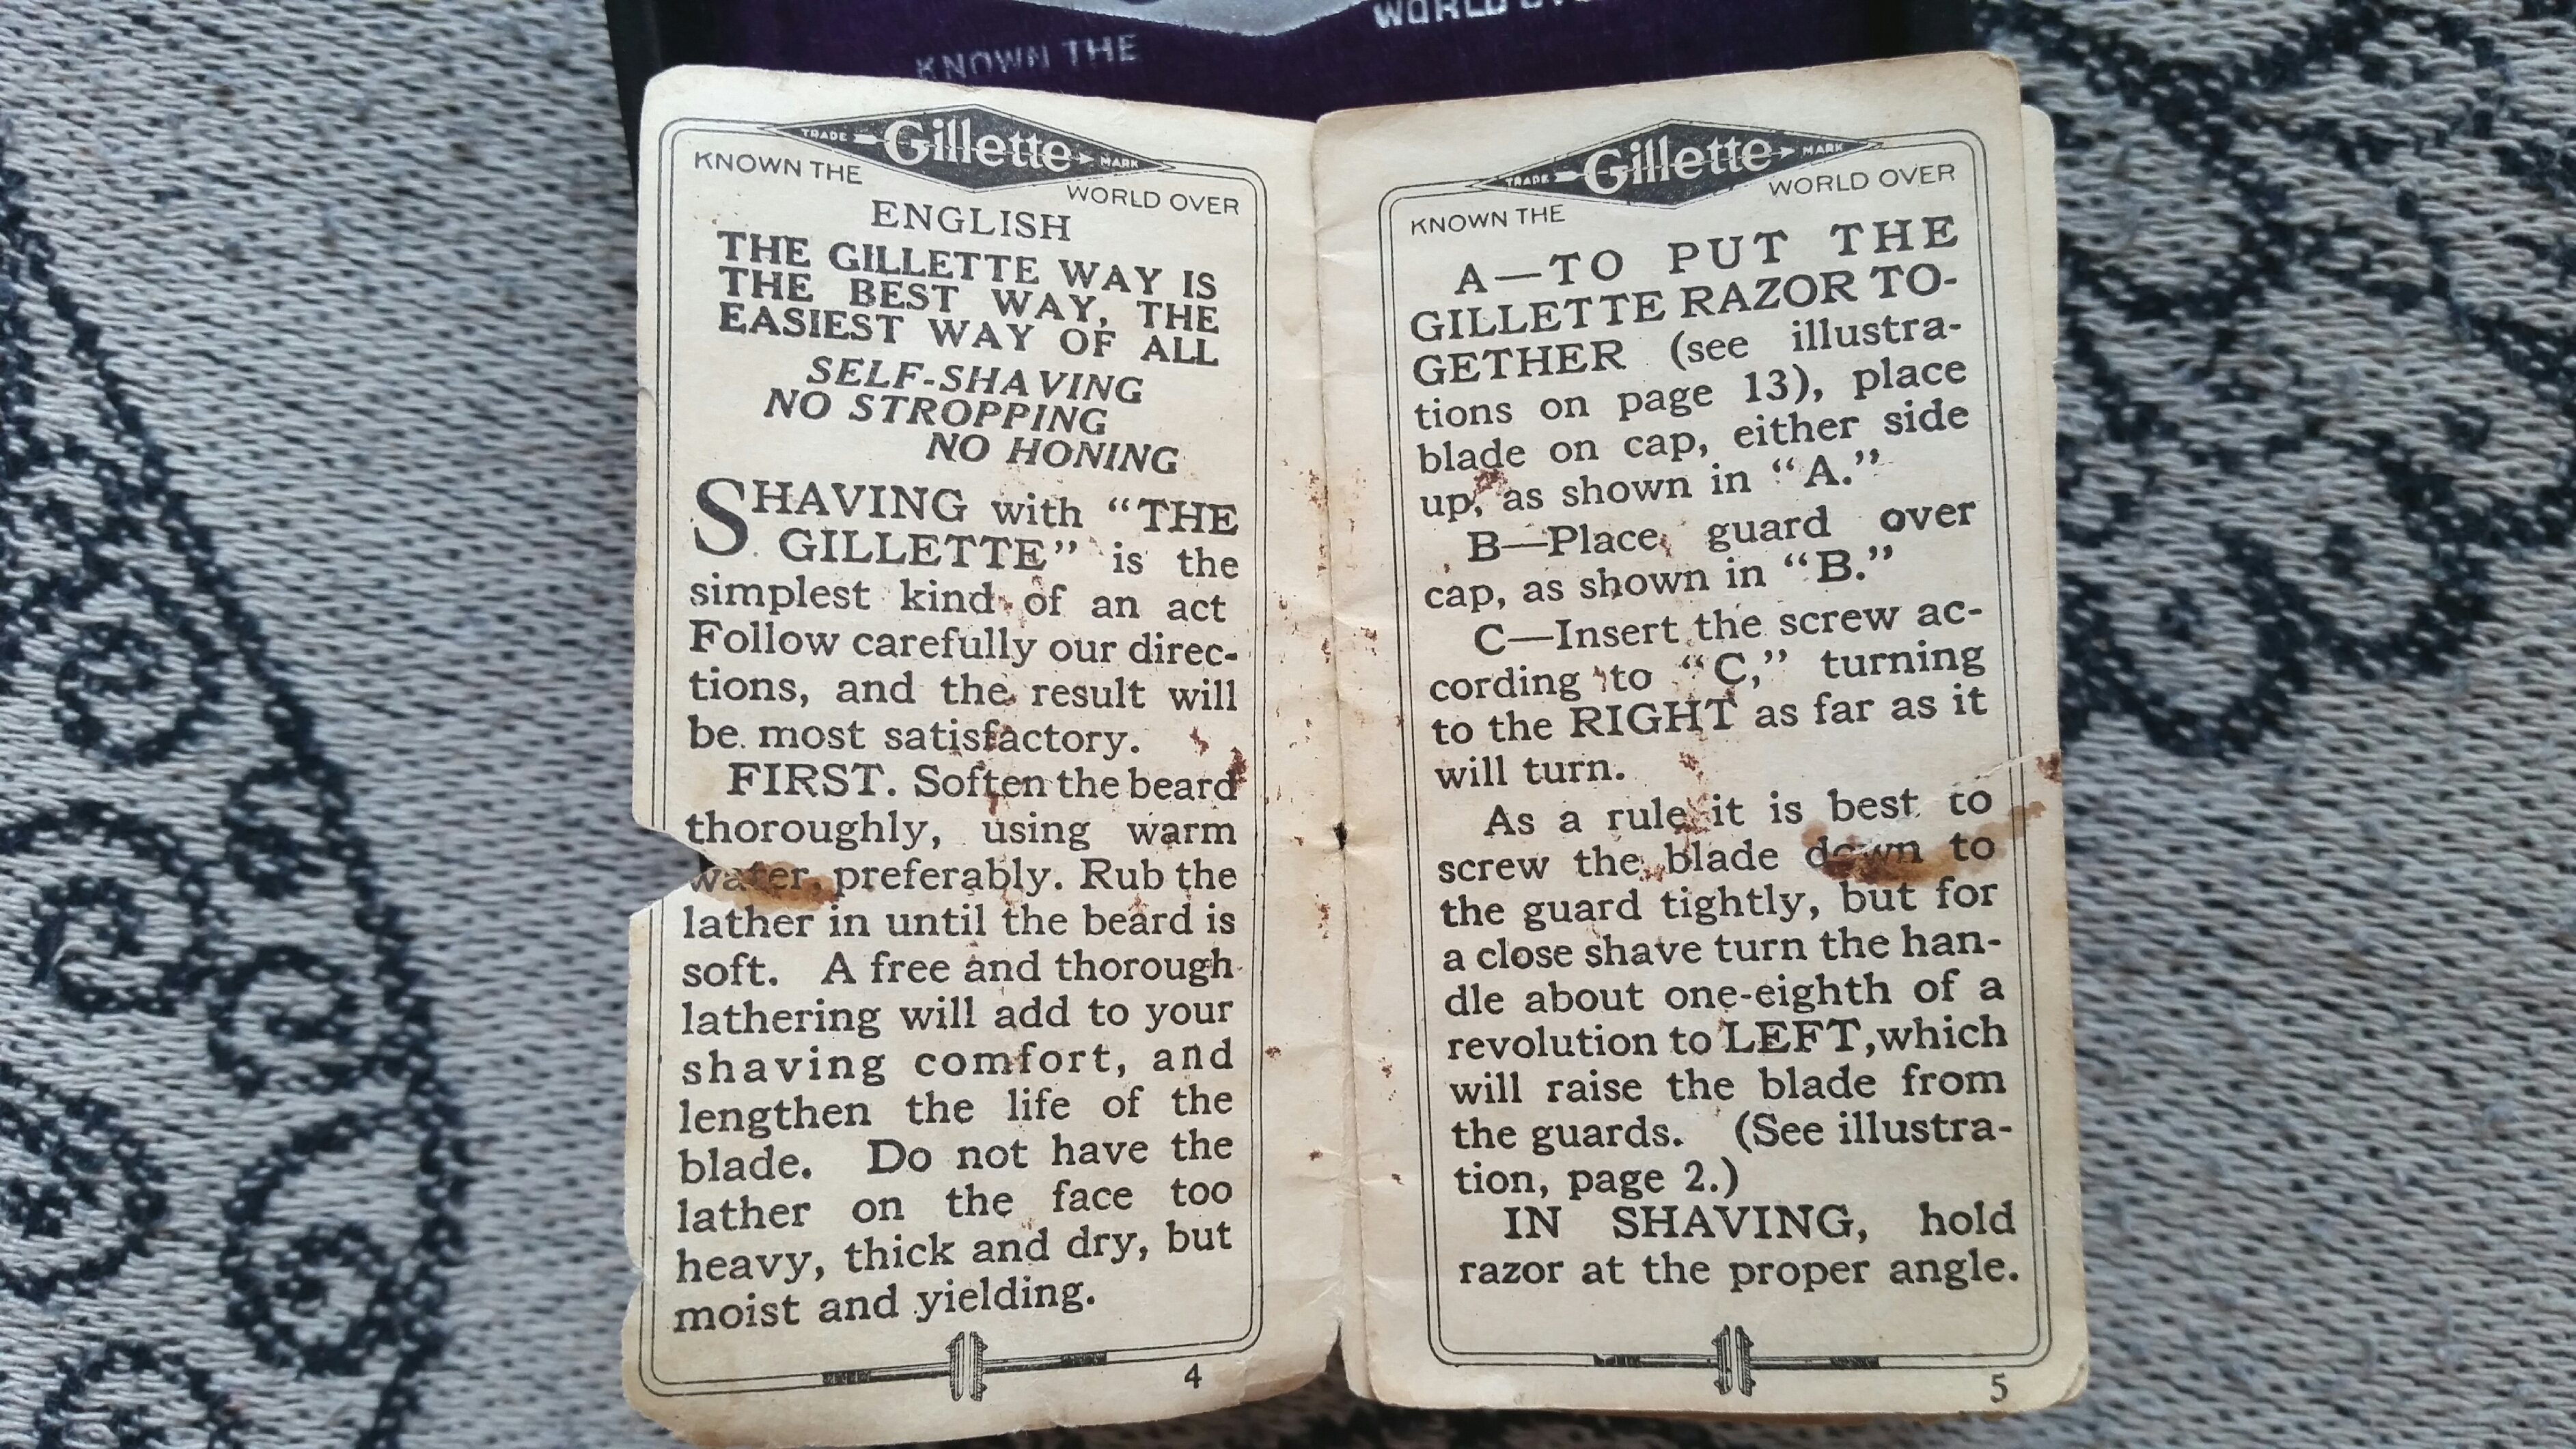 WORLD
KNOWN THE
TRADE Gillette MARK
KNOWN THE WORLD OVER
ENGLISH
THE GILLETTE WAY IS
THE BEST WAY, THE
EASIEST WAY OF ALL
SELF-SHAVING
NO STROPPING
NO HONING
SHAVING with “THE
GILLETTE” is the
simplest kind of an act
Follow carefully our direc-
tions, and the result will
be most satisfactory.
FIRST. Soften the beard
thoroughly, using warm
water, preferably. Rub the
lather in until the beard is
soft. A free and thorough
lathering will add to your
shaving comfort, and
lengthen the life of the
blade. Do not have the
lather on the face too
heavy, thick and dry, but
moist and yielding.
4
TRADE Gillette MARK
KNOWN THE WORLD OVER
A—TO PUT THE
GILLETTE RAZOR TO-
GETHER (see illustra-
tions on page 13), place
blade on cap, either side
up, as shown in “A.”
B—Place guard over
cap, as shown in “B.”
C—Insert the screw ac-
cording to “C,” turning
to the RIGHT as far as it
will turn.
As a rule it is best to
screw the blade down to
the guard tightly, but for
a close shave turn the han-
dle about one-eighth of a
revolution to LEFT, which
will raise the blade from
the guards. (See illustra-
tion, page 2.)
IN SHAVING, hold
razor at the proper angle.
5